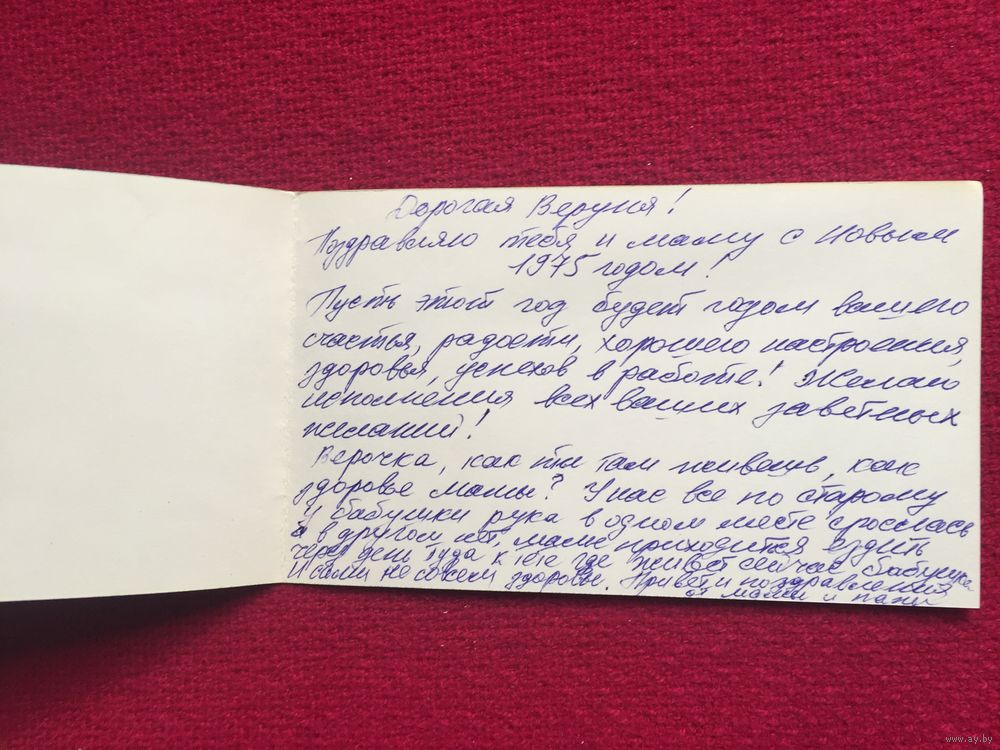 Дорогая Веруня!
Поздравляю тебя и маму с Новым
1975 годом!
Пусть этот год будет годом вашего
счастья, радости, хорошего настроения,
здоровья, успехов в работе! Желаю
исполнения всех ваших заветных
желаний!
Верочка, как ты там живешь, как
здоровье мамы? У нас все по старому
У бабушки рука в одном месте срослась
а в другом нет, маме приходится ездить
через день туда к тёте где живёт сейчас бабушка
И сами не совсем здоровы. Привет и поздравления
от мамы и папы
www.ay.by